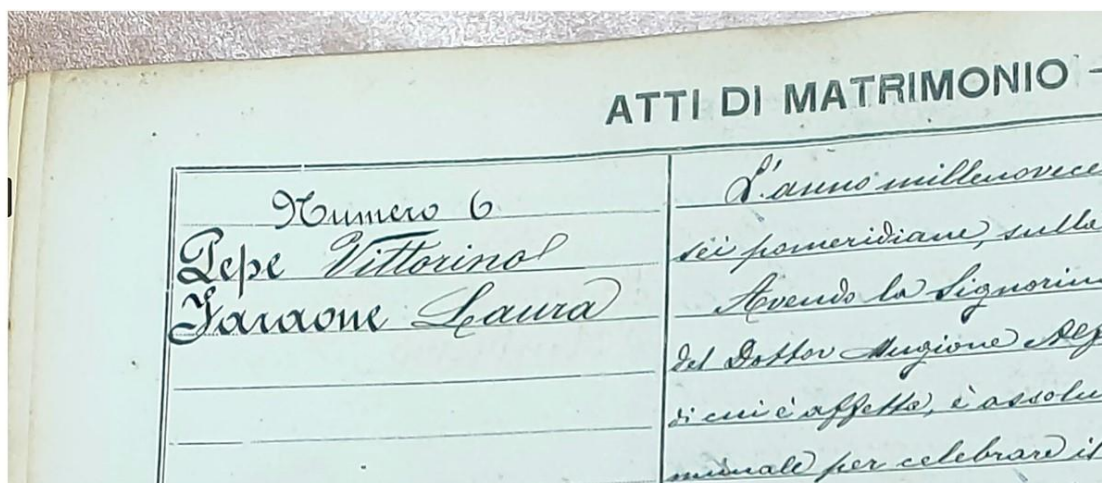 ATTI DI MATRIMONIO -
Numero 6
Pepe Vittorino
Faraone Laura
L'anno millenovece
sei pomeridiane, sulla
Avendo la Signorin
del Dottor Mugione Alf
di cui è affetta, è assolu
per celebrare il